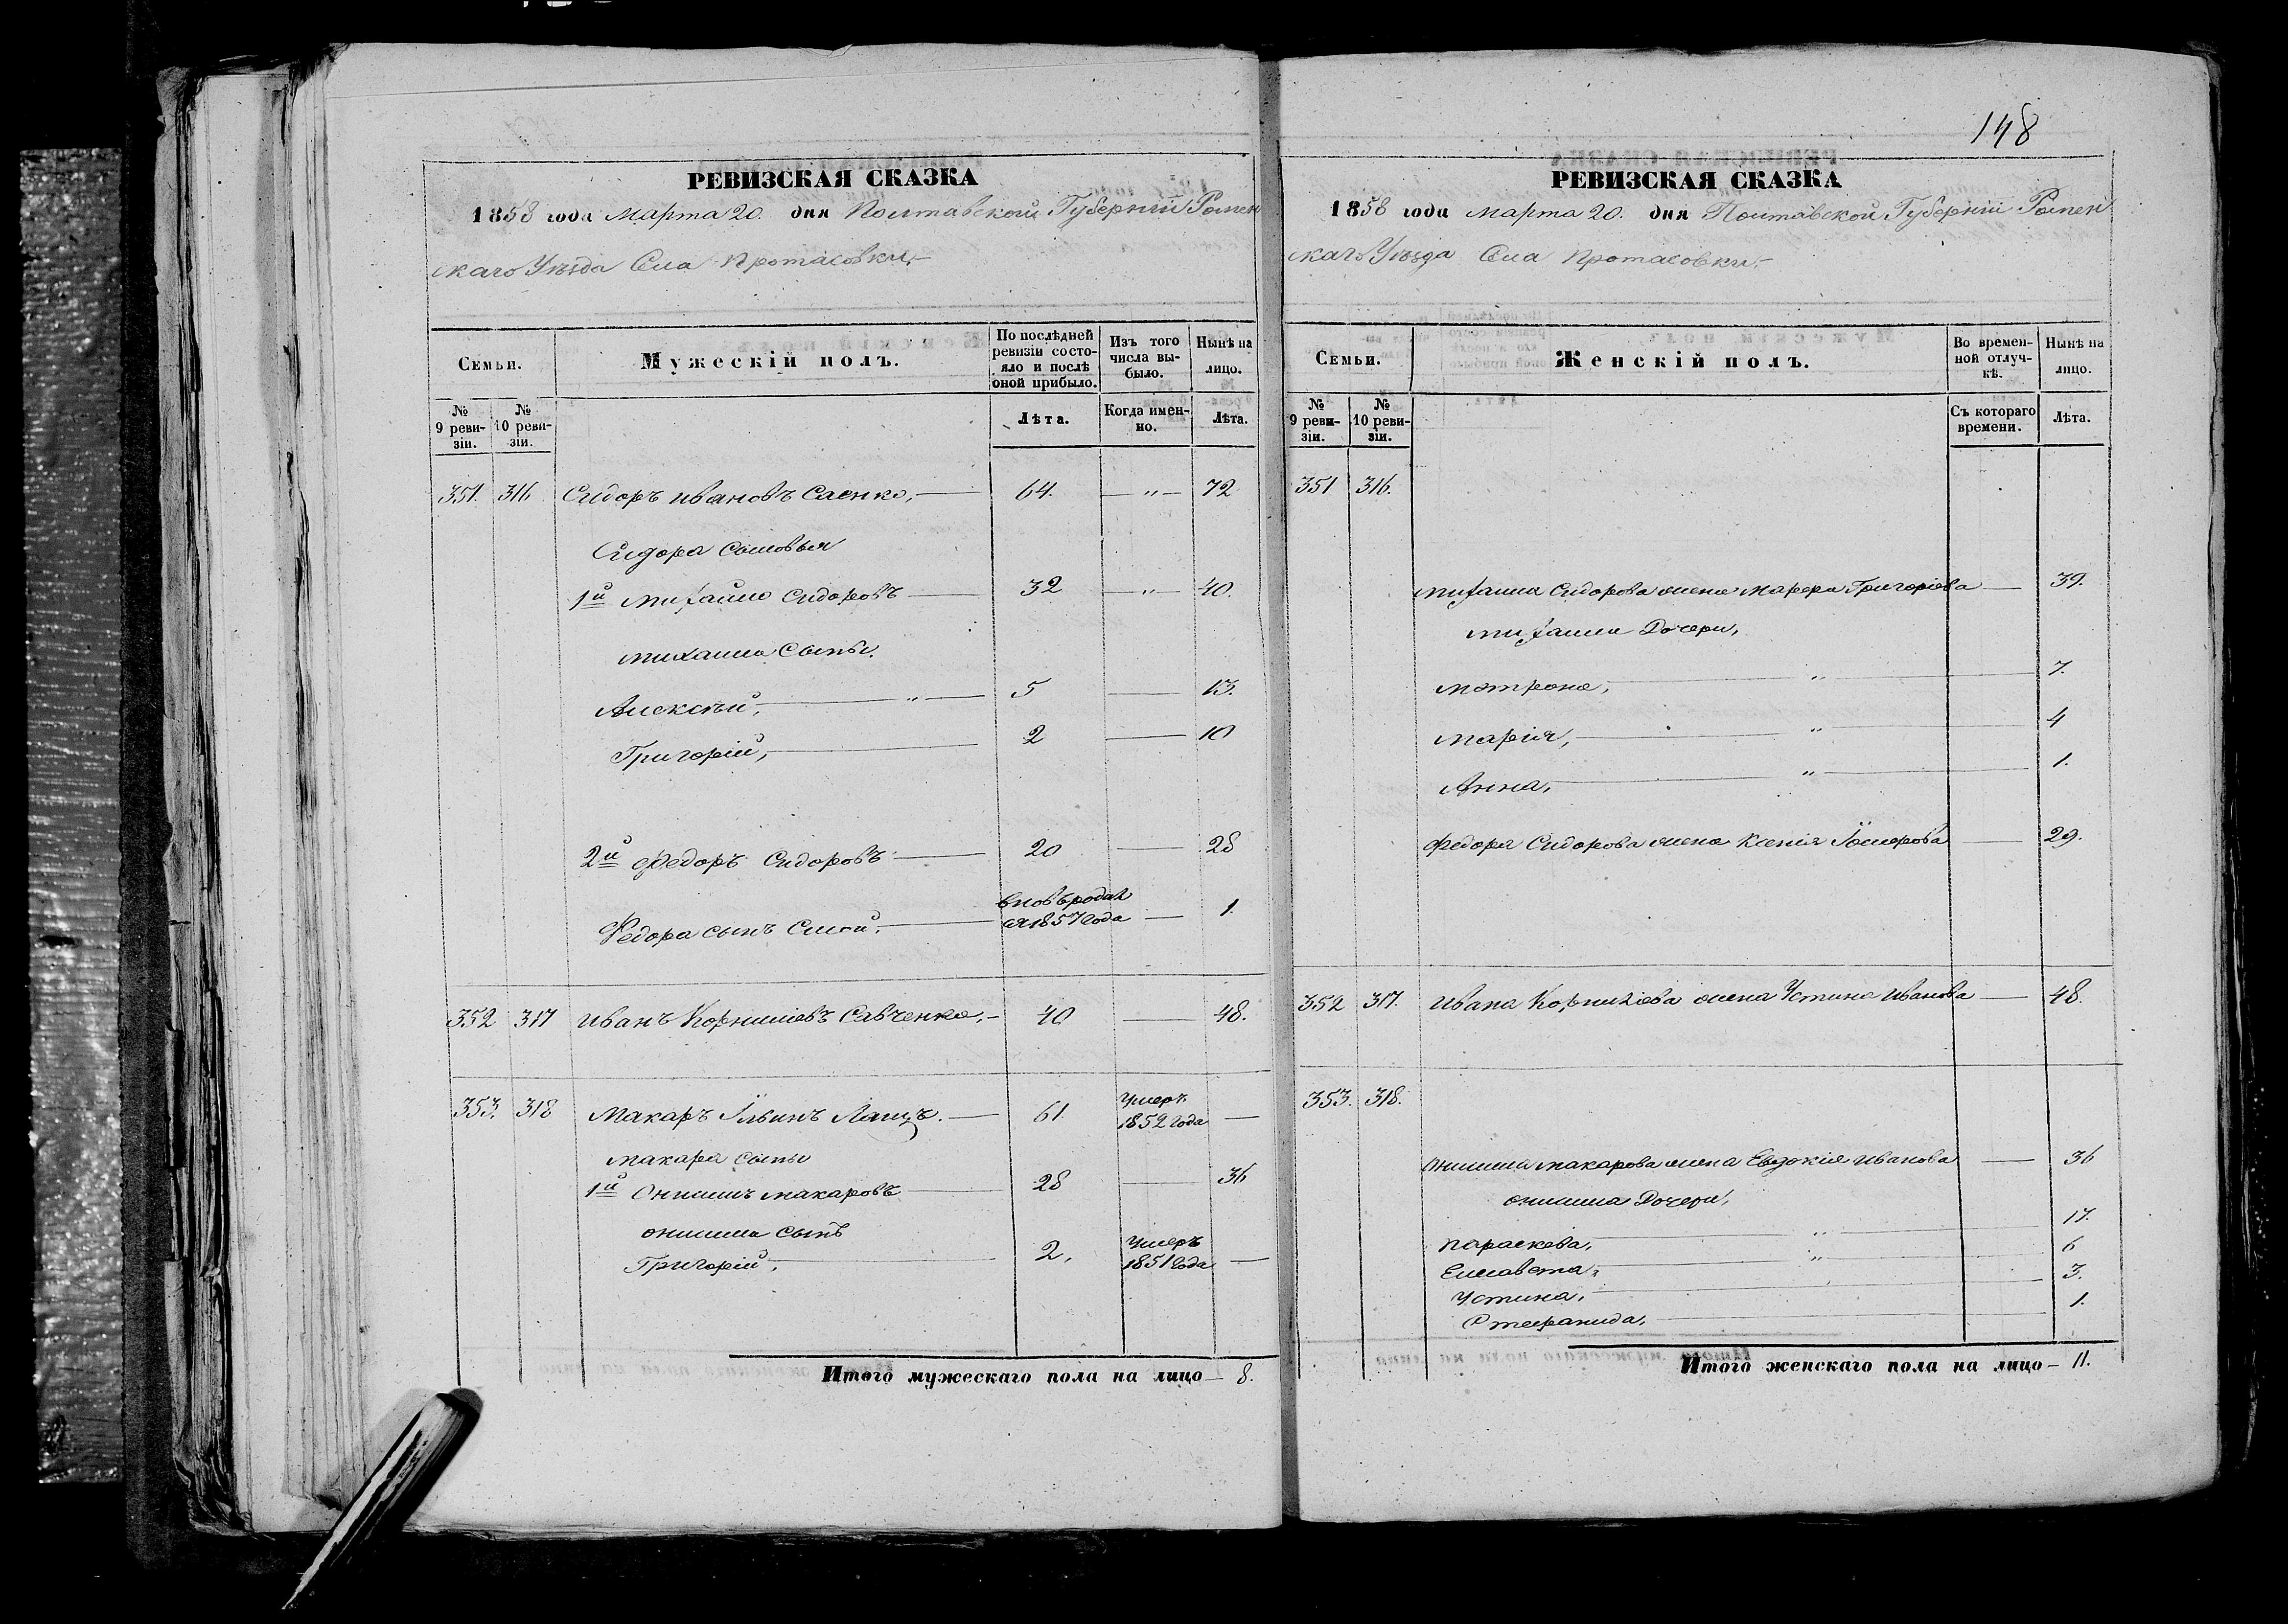 148
РЕВИЗСКАЯ СКАЗКА
1858 года марта 20. дня Полтавской Губерніи Ромен
скаго Уѣзда Села Протасовки.
Семьи.
Мужескій полъ.
По послѣдней ревизіи состояло и послѣ оной прибыло.
Изъ того числа выбыло.
Нынѣ на лицо.
№ 9 ревизіи.
№ 10 ревизіи.
Лѣта.
Когда именно.
Лѣта.
351. 316 Сидоръ Ивановъ Саенко, 64. — " — 72
Сидора сыновья
1й Михайло Сидоровъ 32 — " — 40.
Михаила Сыны.
Алексѣй, " 5 — 13.
Григорій, 2 — 10
2й Федоръ Сидоровъ 20 — 28
Федора сынъ вновь родил
ся 1857 года — 1
352 317 Иванъ Корниліевъ Савченко, 40 — 48.
353. 318 Макаръ Ильинъ 61. Умеръ
1852 года —
Макара сыны
1й Онисимъ Макаровъ 28 — 36
Онисима сынъ
Григорій, 2, Умеръ
1851 года —
Итого мужескаго пола на лицо — 8.
РЕВИЗСКАЯ СКАЗКА
1858 года марта 20. дня Полтавской Губерніи Ромен
скаго Уѣзда Села Протасовки.
Семьи.
Женскій полъ.
Во временной отлучкѣ.
Нынѣ на лицо.
№ 9 ревизіи.
№ 10 ревизіи.
Съ котораго времени.
Лѣта.
351 316.
Михаила Сидорова жена Марфа Григоріева — 39.
Михаила Дочери,
Матрона, " 7.
Марія, " 4
Анна, " 1.
Федора Сидорова жена Ксенія — 29.
352 317. Ивана Корниліева жена Устина Иванова — 48.
353. 318.
Онисима Макарова жена Евдокія Иванова — 36
Онисима Дочери,
Параскева, " 17.
Елисавета, " 6
Устина, 3.
Стефанида, 1.
Итого женскаго пола на лицо — 11.